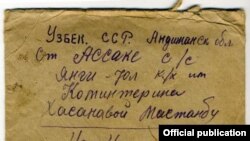 Узбек. ССР. Андижанск обл
От Ассаке с/с
Янги-юл к/х им
Коминтерна
Хасановой Мастанбу
Official publication